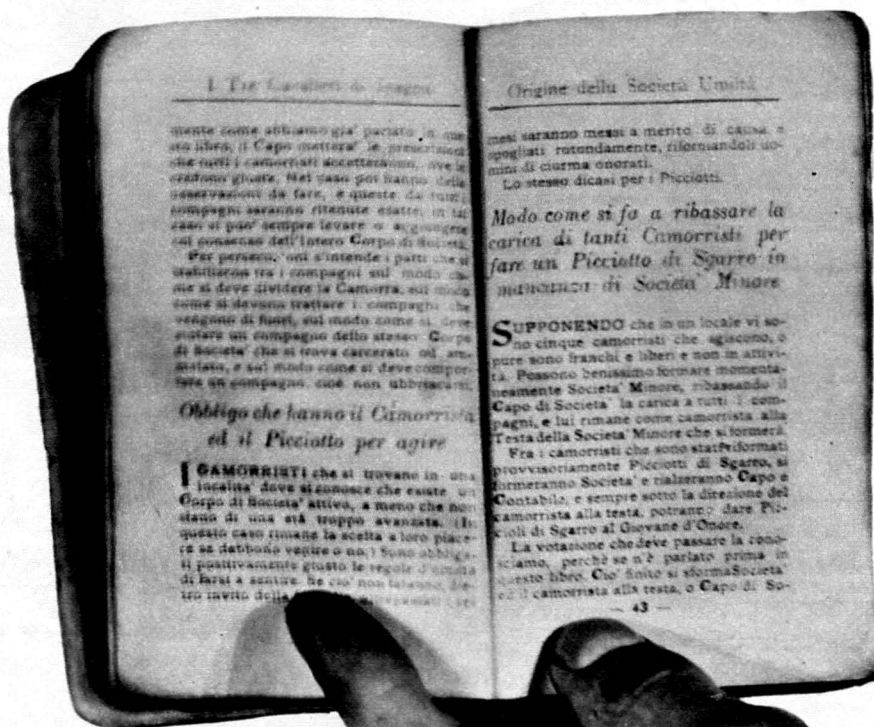 I Tre Cavalieri di
mente come abbiamo gia' parlato in que
sto libro, il Capo mettera' le prescrizioni
che tutti i camorristi accetteranno, ove le
credono giuste. Nel caso poi hanno delle
osservazioni da fare, e queste da tutti i
compagni saranno ritenute esatte, in tal
caso si puo' sempre levare o aggiungere
col consenso dell'intero Corpo di Società.
Per i patti che si
stabiliscon tra i compagni sul modo co-
me si deve dividere la Camorra, sul modo
come si devono trattare i compagni che
vengono di fuori, sul modo come si deve
aiutare un compagno dello stesso Corpo
di Societa' che si trova carcerato od am-
malato, e sul modo come si deve compor-
tare un compagno, cioè non ubbriacarsi,
Obbligo che hanno il Camorrista
ed il Picciotto per agire
I CAMORRISTI che si trovano in una
localita' dove si conosce che esiste un
Corpo di Societa' attivo, a meno che non
siano di una età troppo avanzata. (In
questo caso rimane la scelta a loro piace-
re se debbono venire o no.) Sono obbliga-
ti positivamente giusto le regole d'umiltà
di farsi a sentire, he cio' non faranno, die-
tro invito della
Origine della Società Umiltà
mesi saranno messi a merito di causa, e
spogliati rotondamente, riformandoli uo-
mini di ciurma onorati.
Lo stesso dicasi per i Picciotti.
Modo come si fa a ribassare la
carica di tanti Camorristi per
fare un Picciotto di Sgarro in
mancanza di Societa' Minore
SUPPONENDO che in un locale vi so-
no cinque camorristi che agiscono, o
pure sono franchi e liberi e non in attivi-
tà. Possono benissimo formare momenta-
neamente Societa' Minore, ribassando il
Capo di Societa' la carica a tutti i com-
pagni, e lui rimane come camorrista alla
Testa della Societa' Minore che si formerà.
Fra i camorristi che sono stati riformati
provvisoriamente Picciotti di Sgarro, si
formeranno Societa' e rialzeranno Capo e
Contabile, e sempre sotto la direzione del
camorrista alla testa, potranno dare Pic-
cioli di Sgarro al Giovane d'Onore.
La votazione che deve passare la cono-
sciamo, perchè se n'è parlato prima in
questo libro. Cio' finito si sforma Societa'
ed il camorrista alla testa, o Capo di So-
— 43 —